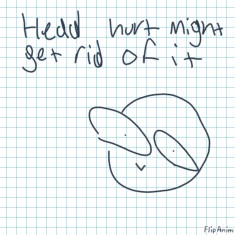 Hedd hurt might
get rid of it
FlipAnim